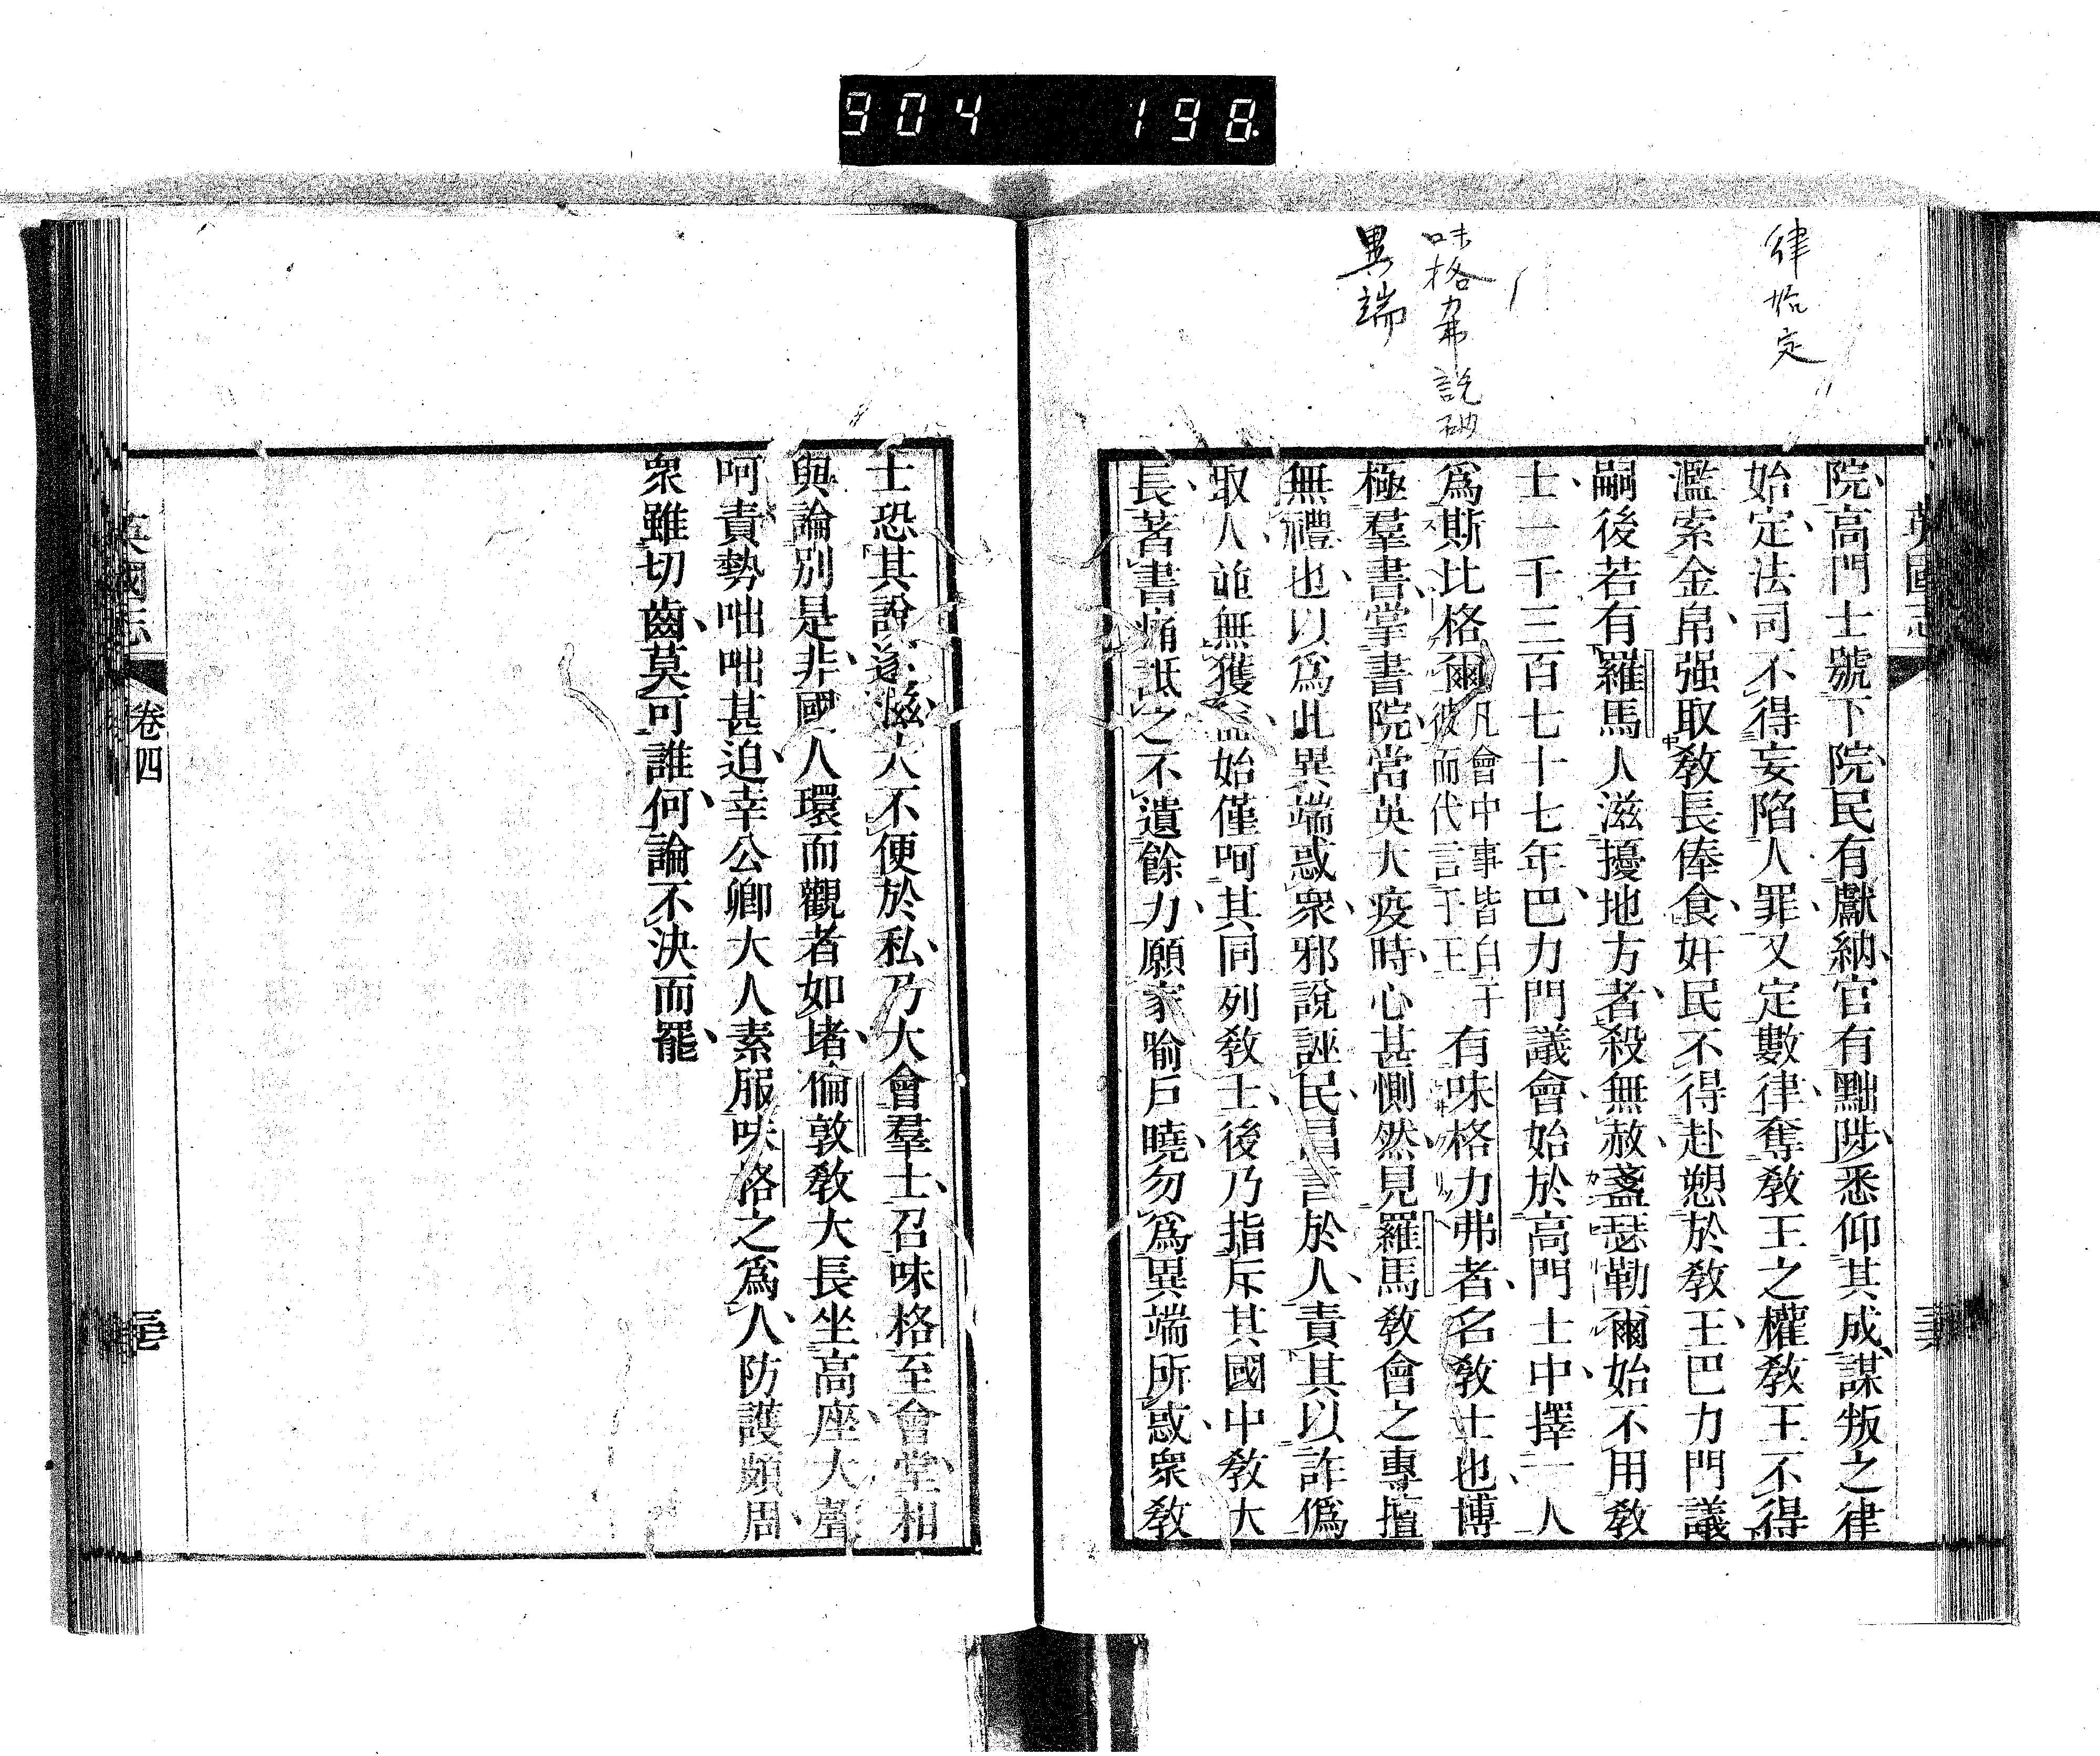 904 198
律始定
味格力弗說破
異端
英國志
院高門士號下院民有獻納官有黜陟悉仰其成謀叛之律
始定法司不得妄陷人罪又定數律奪教王之權教王不得
濫索金帛强取教長俸食奸民不得赴愬於教王巴力門議
嗣後若有羅馬人滋擾地方者殺無赦盞瑟勒爾始不用教
士一千三百七十七年巴力門議會始於高門士中擇一人
爲斯比格爾凡會中事皆白于彼而代言于王有味格力弗者名教士也博
極羣書掌書院當英大疫時心甚惻然見羅馬教會之專擅
無禮也以爲此異端惑衆邪說誣民昌言於人責其以詐僞
取人並無獲益始僅呵其同列教士後乃指斥其國中教大
長著書痛詆之不遺餘力願家喻戶曉勿爲異端所惑衆教
士恐其說遂滋大不便於私乃大會羣士召味格至會堂相
與論別是非國人環而觀者如堵倫敦教大長坐高座大聲
呵責勢咄咄甚迫幸公卿大人素服味格之爲人防護頗周
衆雖切齒莫可誰何論不決而罷
英國志
卷四